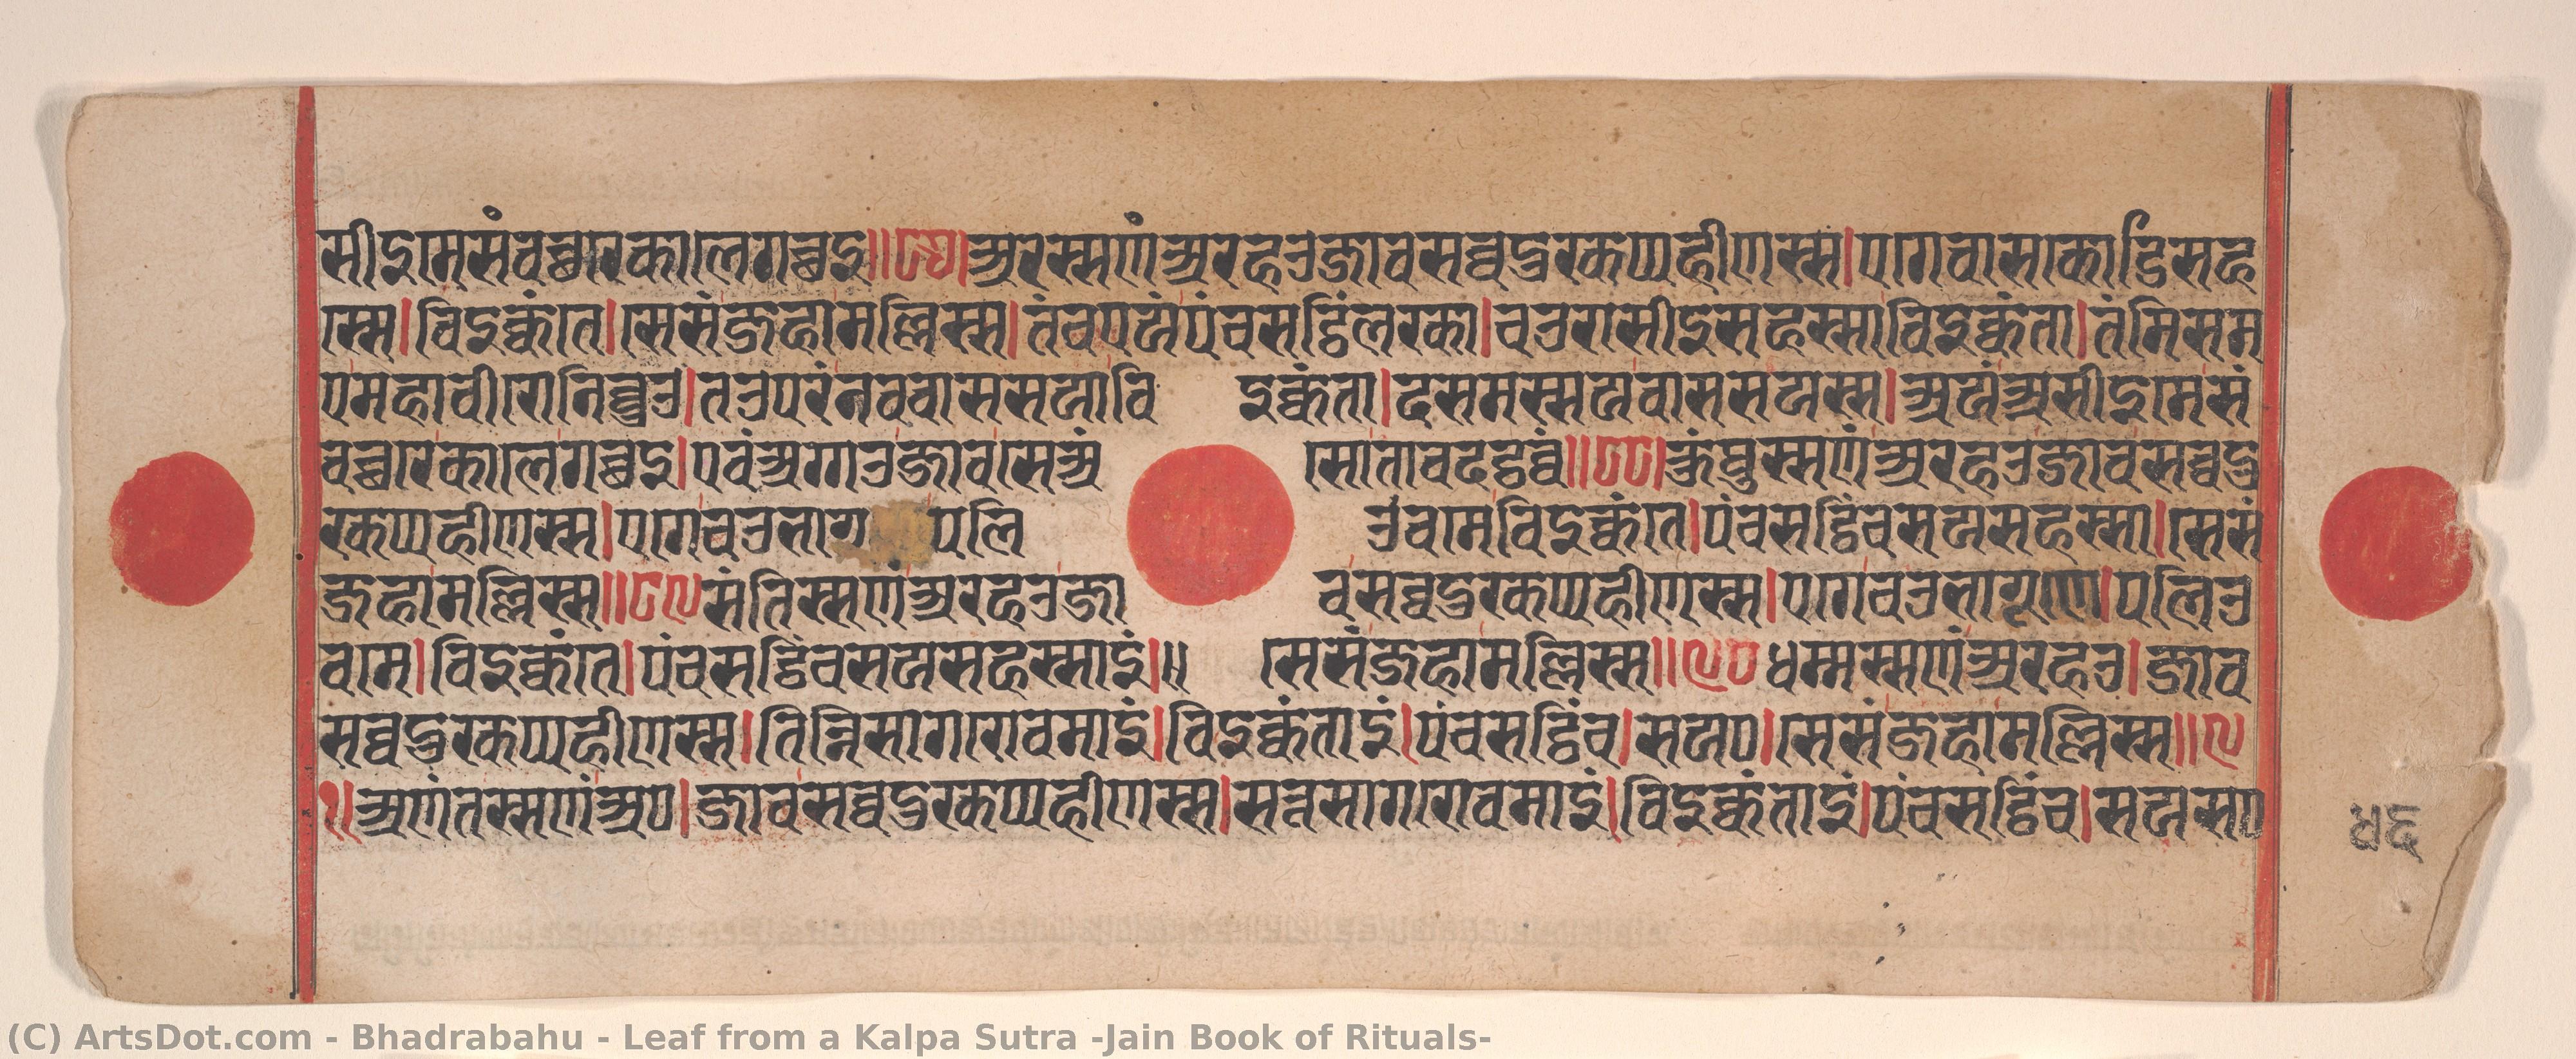 सीइमे संवच्छरे काले गच्छइ॥८७॥अरस्स णं अरहउ जाव सव्वदुरकप्पहीणस्स।एगे वासकोडिसह
स्से।विइक्कंते।सेसं जहा मल्लिस्स।तं च एयं पंचसट्ठिं लरका।चउरासीइ सहस्सा विइक्कंता।तंमि सम
ए महावीरो निव्वुउ।तउ परं नव वाससया वि इक्कंता।दसमस्स य वाससयस्स।अयं असीइमे सं
वच्छरे काले गच्छइ।एवं अग्गउ जाव सेअं सो ताव दट्ठव्वं॥८८॥कुंथुस्स णं अरहउ जाव सव्वदु
रकप्पहीणस्स।एगे चउभाग पलि उवमे विइक्कंते।पंचसट्ठिं च सयसहस्सा।सेसं
जहा मल्लिस्स॥८९ संतिस्स णं अरहउ जा व सव्वदुरकप्पहीणस्स।एगे चउभागूणे।पलिउ
वमे।विइक्कंते।पंचसट्ठिं च सयसहस्साइं।॥ सेसं जहा मल्लिस्स॥९० धम्मस्स णं अरहउ।जाव
सव्वदुरकप्पहीणस्स।तिन्नि सागरोवमाइं।विइक्कंताइं।पंचसट्ठिं च।सयए।सेसं जहा मल्लिस्स॥९
१॥अणंतस्स णं अए।जाव सव्वदुरकप्पहीणस्स।सत्त सागरोवमाइं।विइक्कंताइं।पंचसट्ठिं च।सयसए
५६
(C) ArtsDot.com - Bhadrabahu - Leaf from a Kalpa Sutra -Jain Book of Rituals-